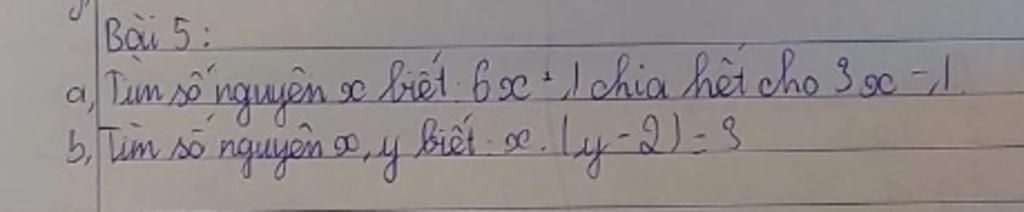 Bài 5:
a, Tìm số nguyên x biết 6x + 1 chia hết cho 3x - 1.
b, Tìm số nguyên x, y biết: x. (y - 2) = 3